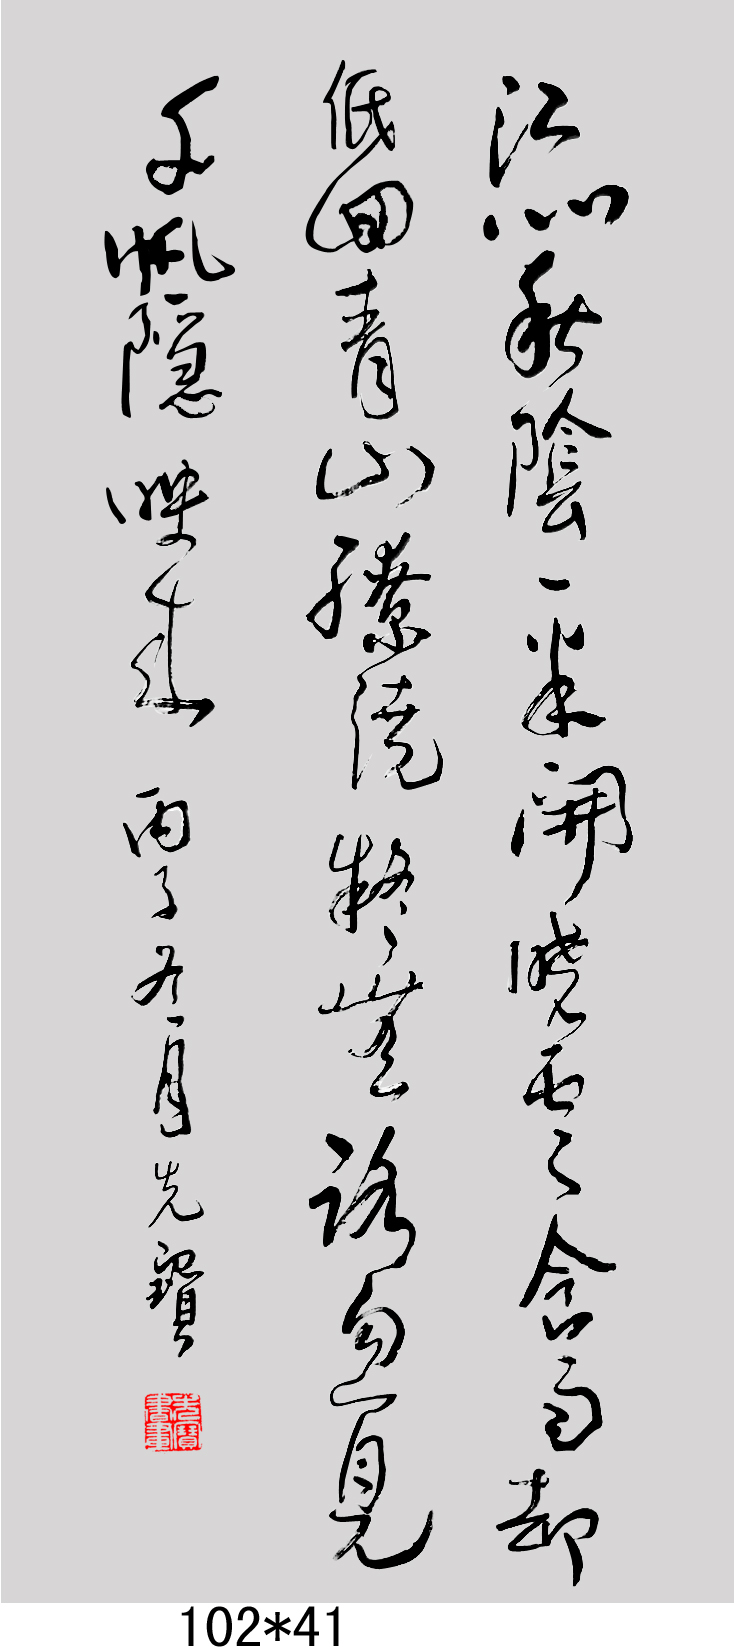 江北秋陰一半開曉雲含雨却
低回青山繚繞疑無路忽見
千帆隐映来 丙子冬月先寶
先寶書畫
102*41